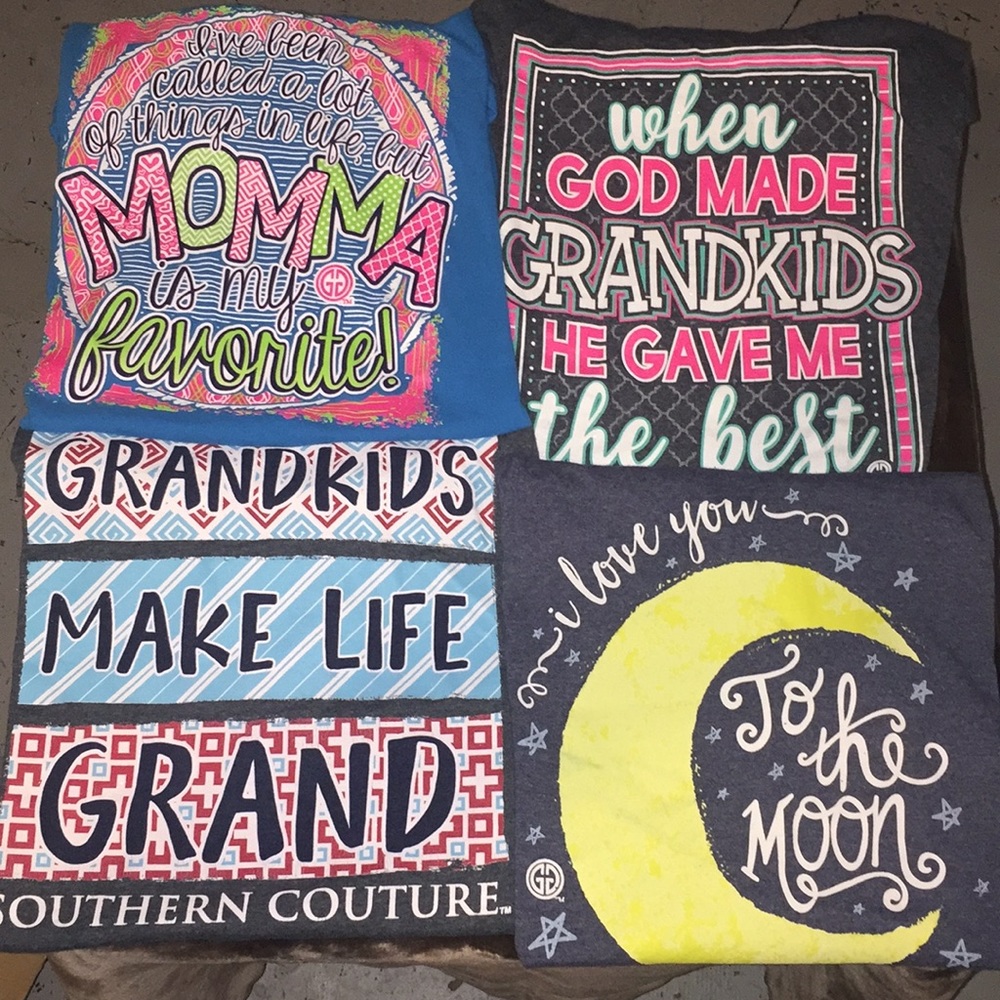 I've been
called a lot
of things in life, but
MOMMA
is my
favorite!
when
GOD MADE
GRANDKIDS
HE GAVE ME
the best
GRANDKIDS
MAKE LIFE
GRAND
SOUTHERN COUTURE™
i love you
To
the
MOON